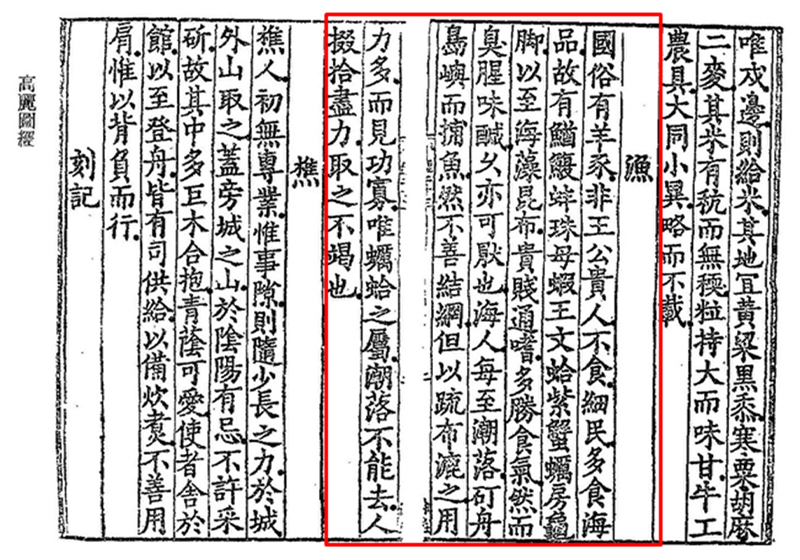 唯戍邊則給米其地宜黃粱黑黍寒粟胡麻
二麥其米有秔而無稬粒特大而味甘牛工
農具大同小異略而不載
漁
國俗有羊豕非王公貴人不食細民多食海
品故有鰌鰒蚌珠母蝦王文蛤紫蟹蠣房龜
脚以至海藻昆布貴賤通嗜多勝食氣然而
臭腥味鹹久亦可猒也海人每至潮落矴舟
島嶼而捕魚然不善結網但以疏布漉之用
力多而見功寡唯蠣蛤之屬潮落不能去人
掇拾盡力取之不竭也
樵
樵人初無專業惟事隙則隨少長之力於城
外山取之蓋旁城之山於陰陽有忌不許采
斫故其中多巨木合抱青蔭可愛使者舍於
館以至登舟皆有司供給以備炊煑不善用
肩惟以背負而行
刻記
高麗圖經